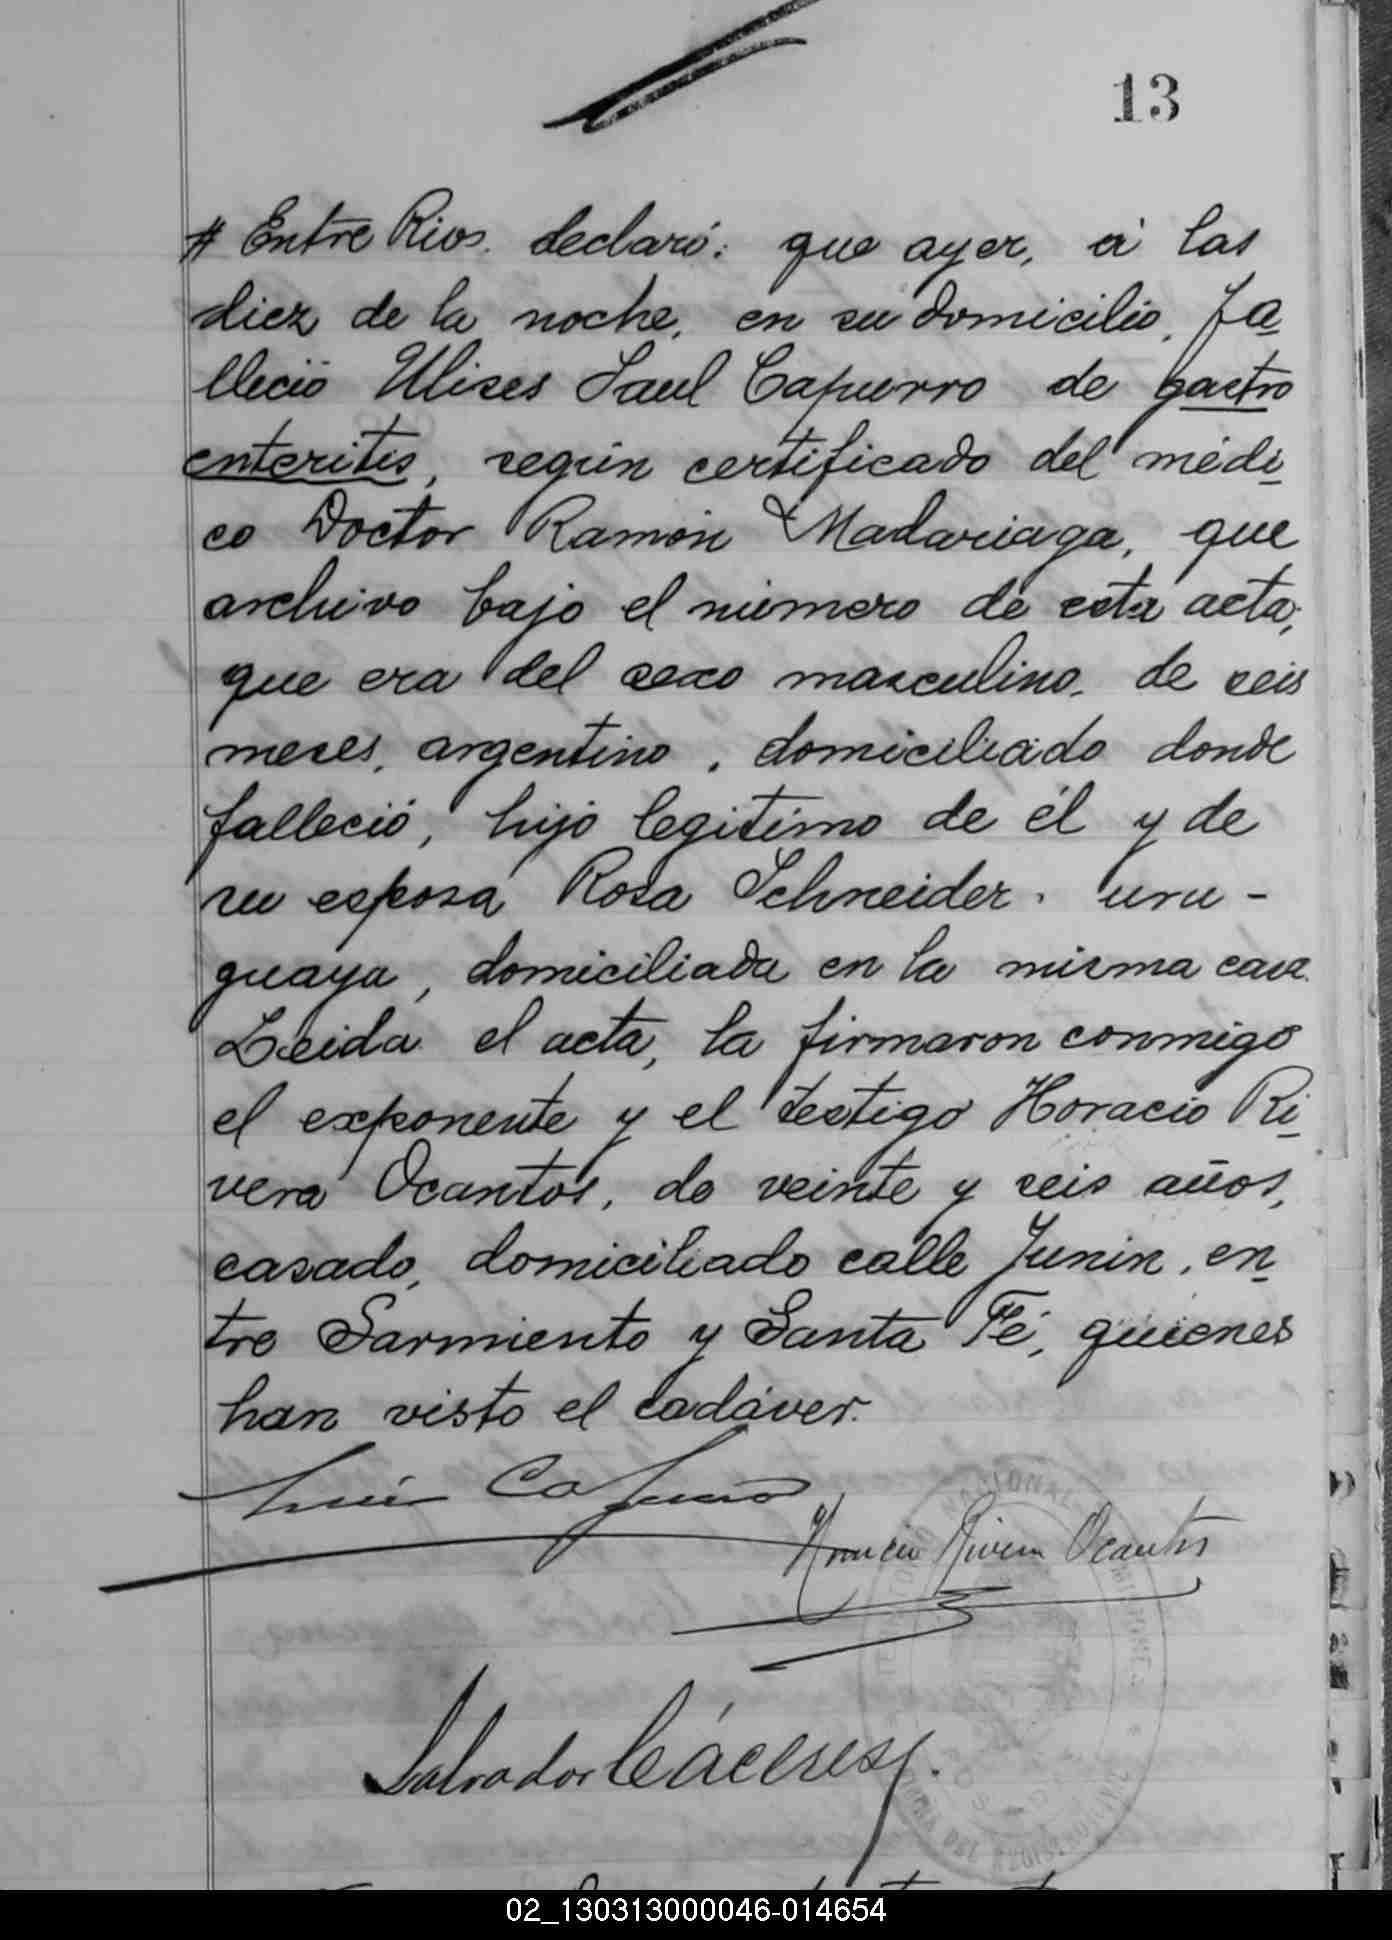 13
# Entre Rios. declaró: que ayer, á las
diez de la noche, en su domicilio, fa
lleció Ulises Saul Capurro de gastro
enteritis, según certificado del médi
co Doctor Ramón Madariaga, que
archivo bajo el número de esta acta;
que era del sexo masculino, de seis
meses, argentino, domiciliado donde
falleció, hijo legitimo de él y de
su esposa Rosa Schneider. uru-
guaya, domiciliada en la misma casa.
Leida el acta, la firmaron conmigo
el exponente y el testigo Horacio Ri
vera Ocantos, de veinte y seis años,
casado, domiciliado calle Junin, en
tre Sarmiento y Santa Fé, quienes
han visto el cadáver.
Luis Capurro
Horacio Rivera Ocantos
Salvador Cáceres
02_130313000046-014654